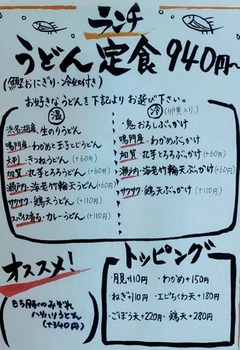 ランチ
うどん定食940円〜
(鰹おにぎり・冷奴付き)
お好きなうどんを下記よりお選び下さい。
温
浜名湖産・生のりうどん
鳴門産・わかめと玉子とじうどん
大判・きつねうどん(+60円)
加賀・丸芋とろろうどん(+60円)
瀬戸内・海老竹輪天うどん(+60円)
サクサク・鶏天うどん(+110円)
スパイス香る・カレーうどん(+110円)
冷
・鬼おろしぶっかけ
鳴門産・わかめぶっかけ
加賀・丸芋とろろぶっかけ(+60円)
瀬戸内・海老竹輪天ぶっかけ(+60円)
サクサク・鶏天ぶっかけ(+110円)
オススメ!
もち豚のみぞれ
うどん
(+340円)
トッピング
・月見+110円・わかめ+150円
・ねぎ+110円・エビちくわ天+180円
・ごぼう天+220円・鶏天+280円